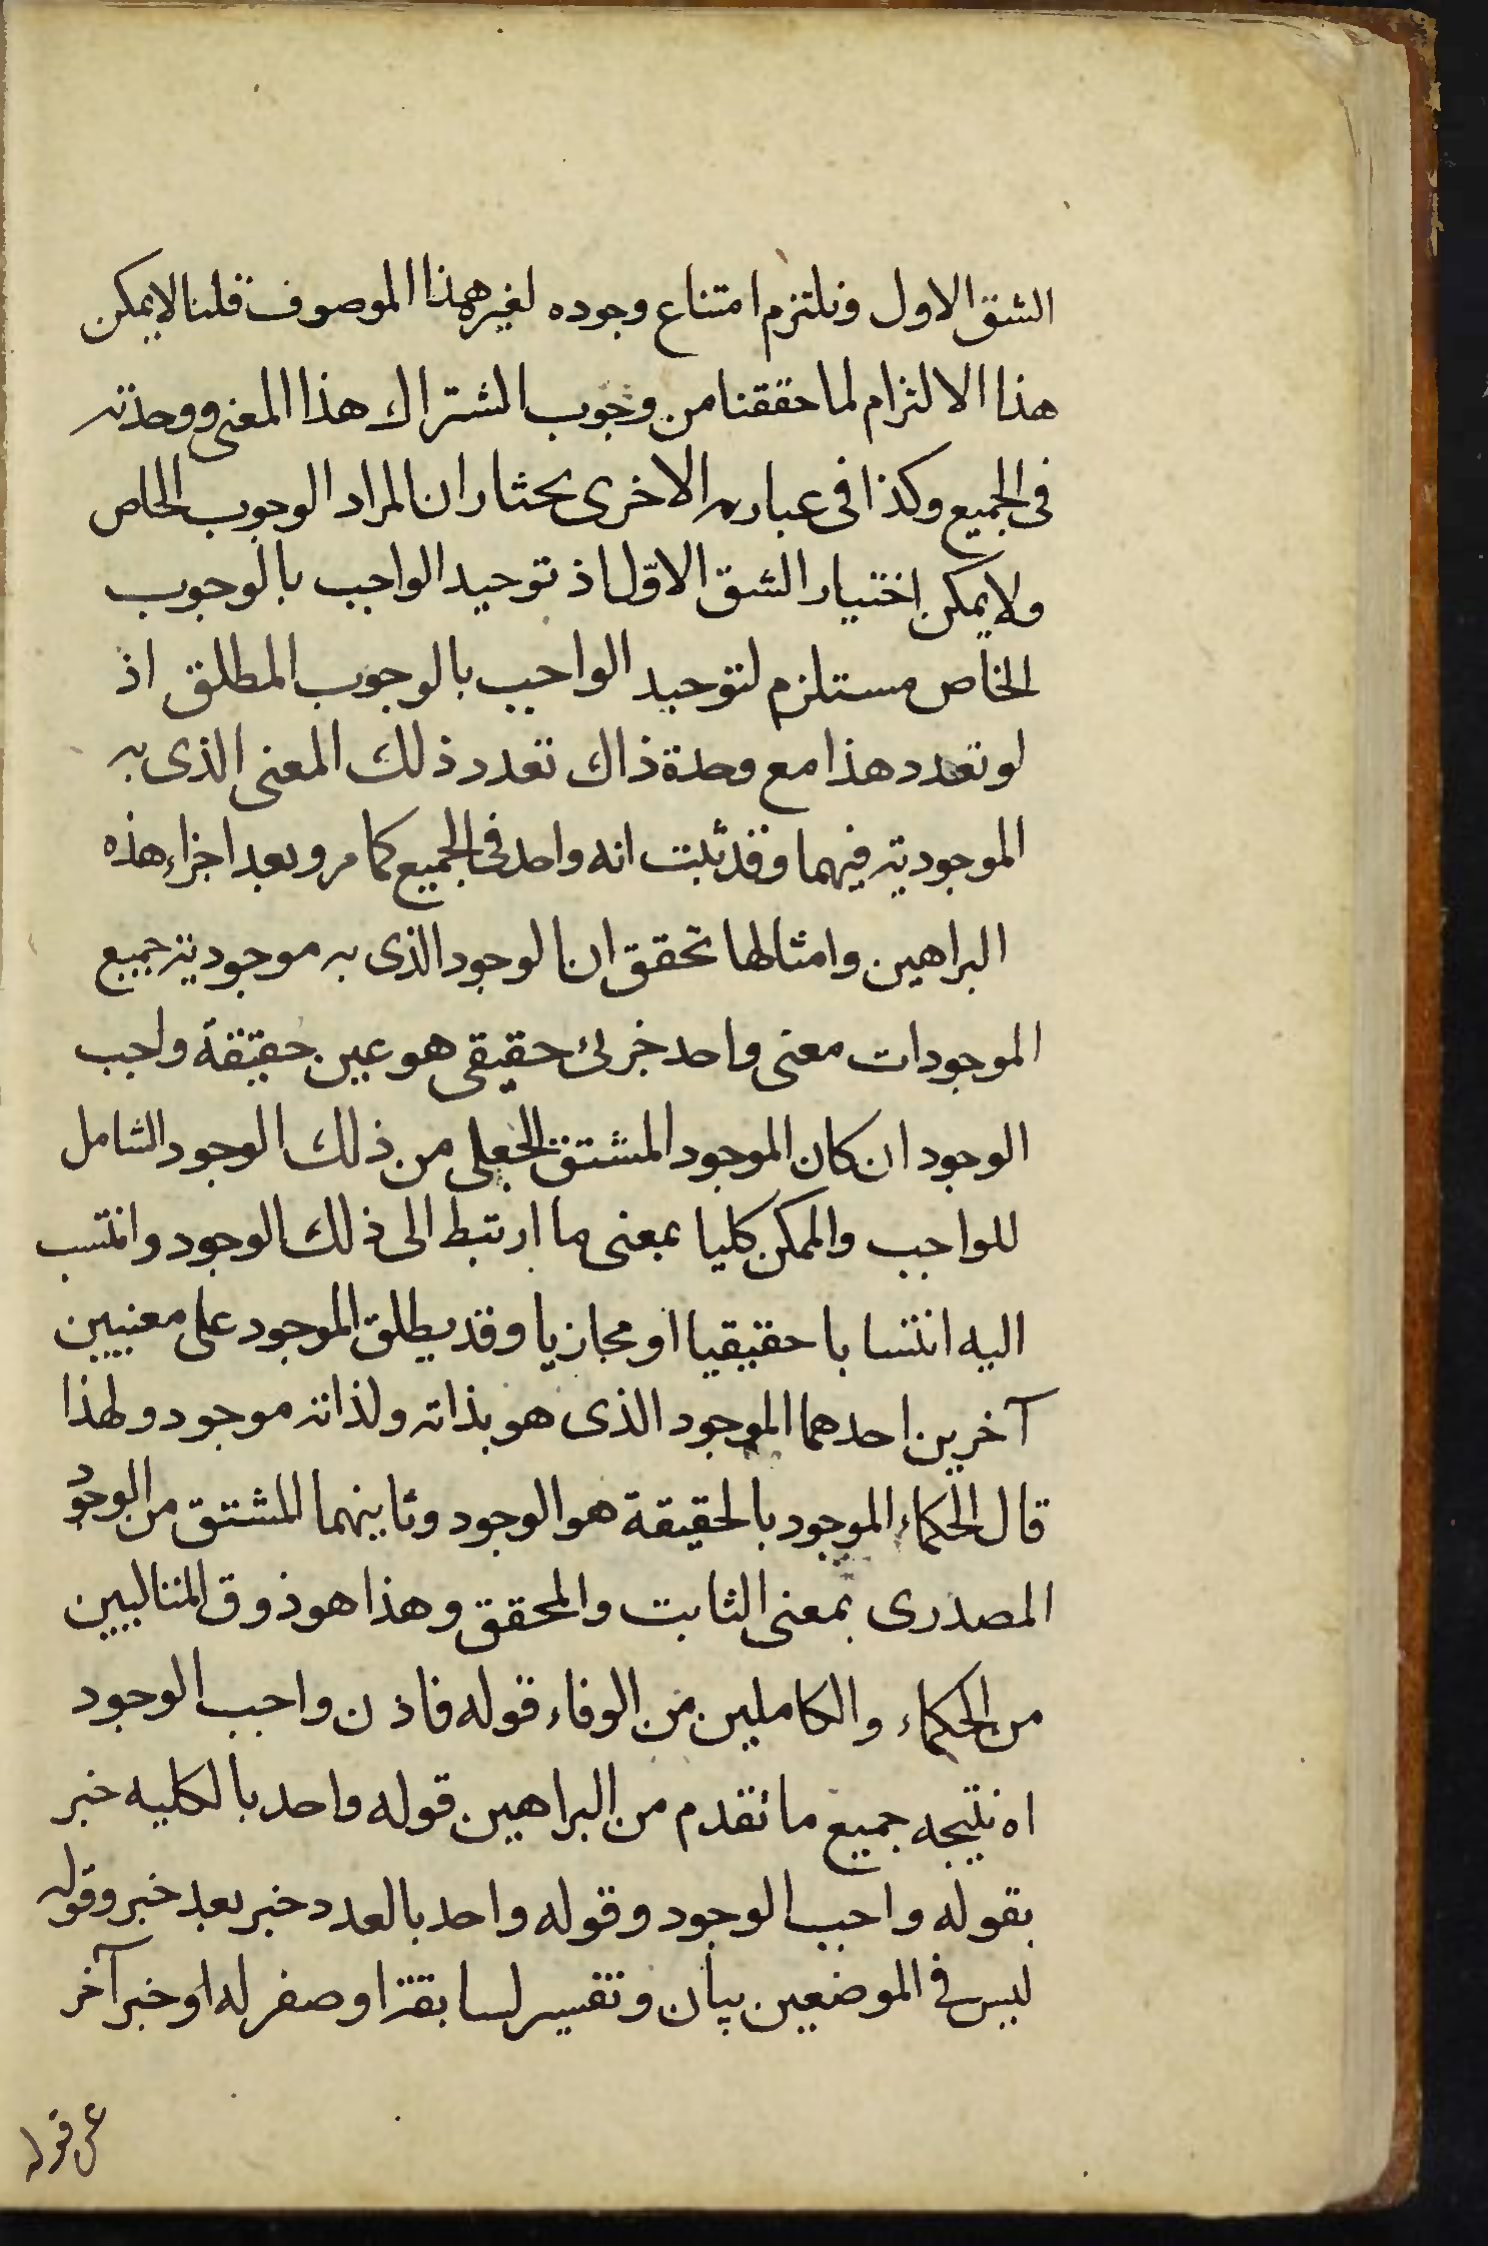 الشق الاول ونلتزم امتناع وجوده لغيره هذا الموصوف قلنا لا يمكن
هذا الالتزام لما حققنا من وجوب اشتراك هذا المعنى ووحدته
فى الجميع وكذا فى عبارته الاخرى يختار ان المراد الوجوب الخاص
ولا يمكن اختيار الشق الاول اذ توحيد الواجب بالوجوب
الخاص مستلزم لتوحيد الواجب بالوجوب المطلق اذ
لو تعدد هذا مع وحدة ذاك تعدد ذلك المعنى الذى به
الموجودية فيهما وقد ثبت انه واحد فى الجميع كما مر وبعد اجراء هذه
البراهين وامثالها تحقق ان الوجود الذى به موجودية جميع
الموجودات معنى واحد جزئ حقيقى هو عين حقيقة واجب
الوجود ان كان الموجود المشتق الجعلى من ذلك الوجود الشامل
للواجب والممكن كليا بمعنى ما ارتبط الى ذلك الوجود وانتسب
اليه انتسابا حقيقيا او مجازيا وقد يطلق الموجود على معنيين
آخرين احدهما الموجود الذى هو بذاته ولذاته موجود ولهذا
قال الحكماء الموجود بالحقيقة هو الوجود وثانيهما المشتق من الوجود
المصدرى بمعنى الثابت والمحقق وهذا هو ذوق المتالهين
من الحكماء والكاملين من الوفاء قوله فاذن واجب الوجود
اه نتيجه جميع ما تقدم من البراهين قوله واحد بالكليه خبر
بقوله واجب الوجود وقوله واحد بالعدد خبر بعد خبر وقوله
ليس فى الموضعين بيان وتفسير لسابقة او صفر له او خبر آخر
عن قوله